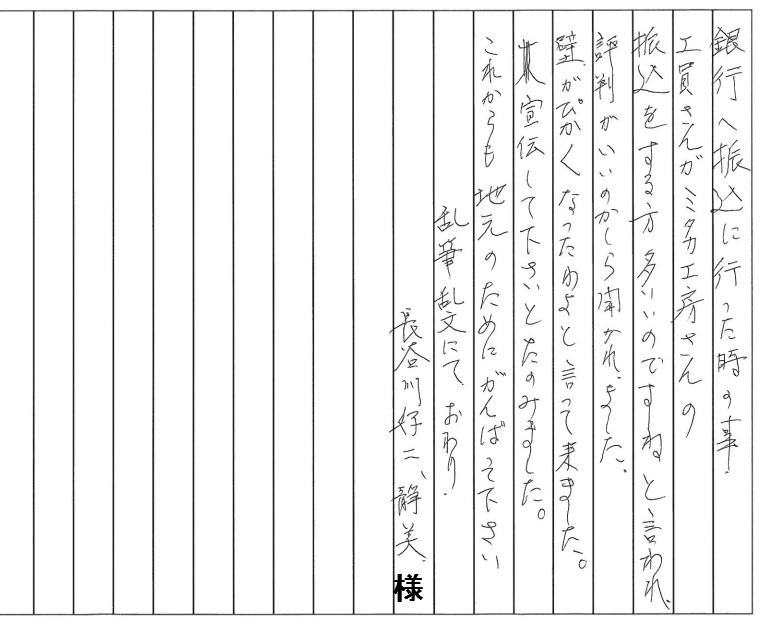 銀行へ振込に行った時の事、
工員さんがミタカ工房さんの
振込をする方多いのですねと、言われ、
評判がいいのかしら聞かれました、
壁がぴかくなったわよと、言って来ました。
宣伝して下さいとたのみました。
これからも地元のためにがんばって下さい
乱筆乱文にて、おわり、
長谷川好二、静美、様